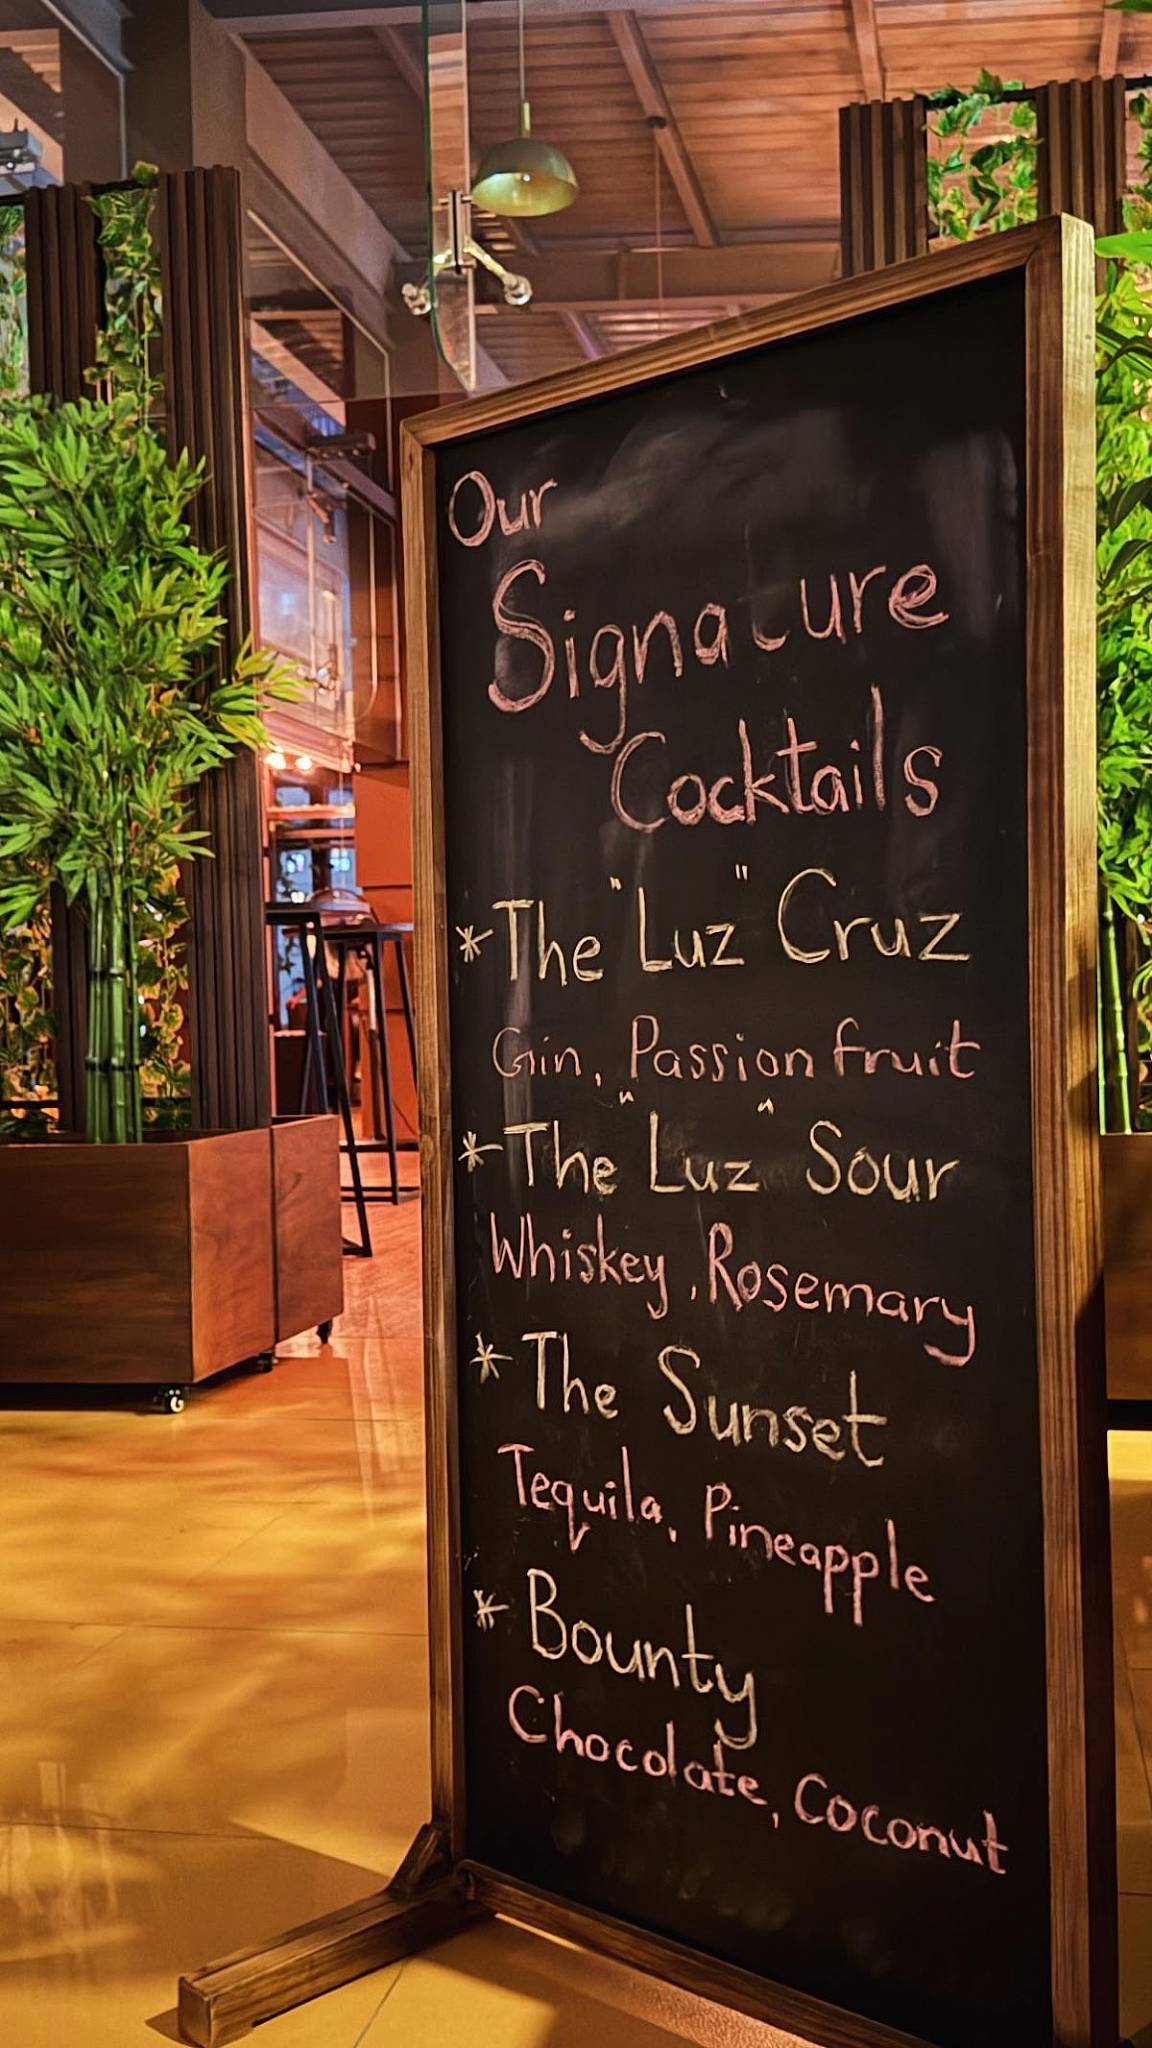 Our
Signature
Cocktails
*The "Luz" Cruz
Gin, Passion fruit
*The "Luz" Sour
Whiskey, Rosemary
*The Sunset
Tequila, Pineapple
*Bounty
Chocolate, Coconut